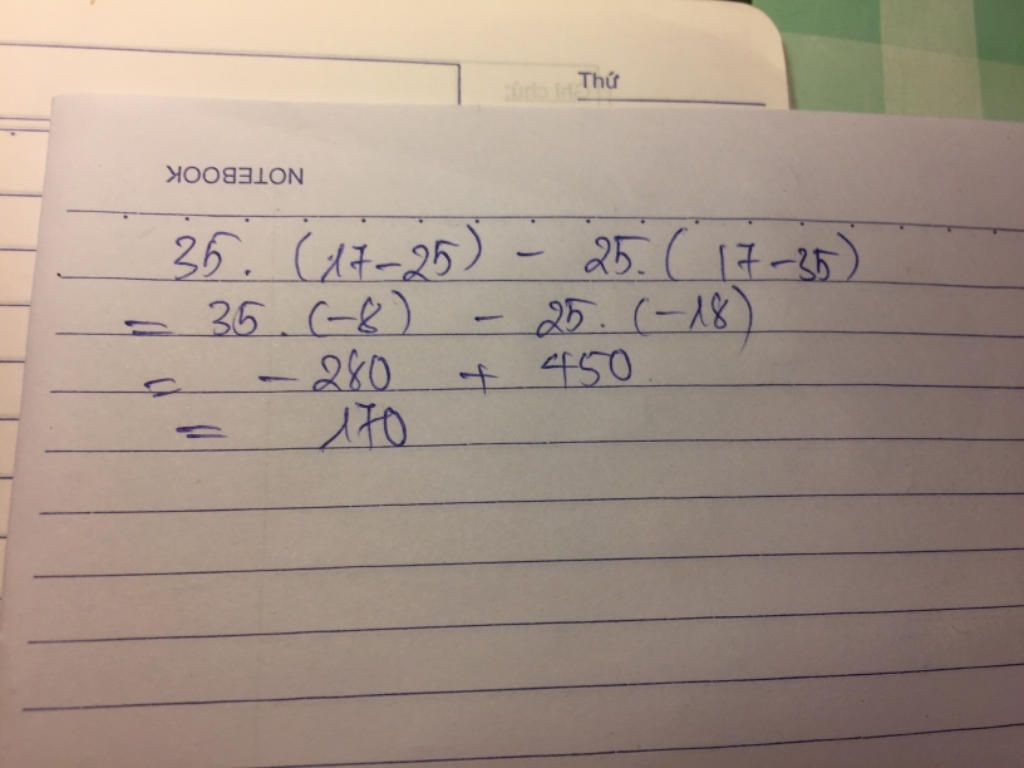 Thứ
Ghi chú:
NOTEBOOK
35. (17-25) - 25. ( 17-35)
= 35. (-8) - 25. (-18)
= - 280 + 450
= 170